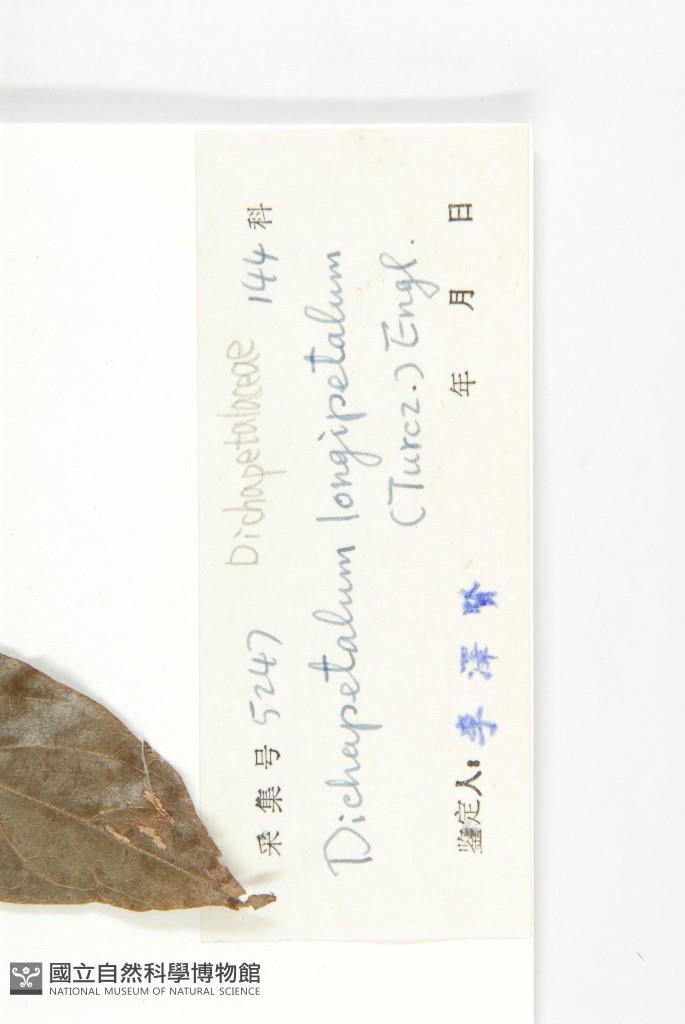 采集号 5247 Dichapetalaceae 144科
Dichapetalum longipetalum
(Turcz.) Engl.
鉴定人: 李澤賢 年 月 日
國立自然科學博物館
NATIONAL MUSEUM OF NATURAL SCIENCE